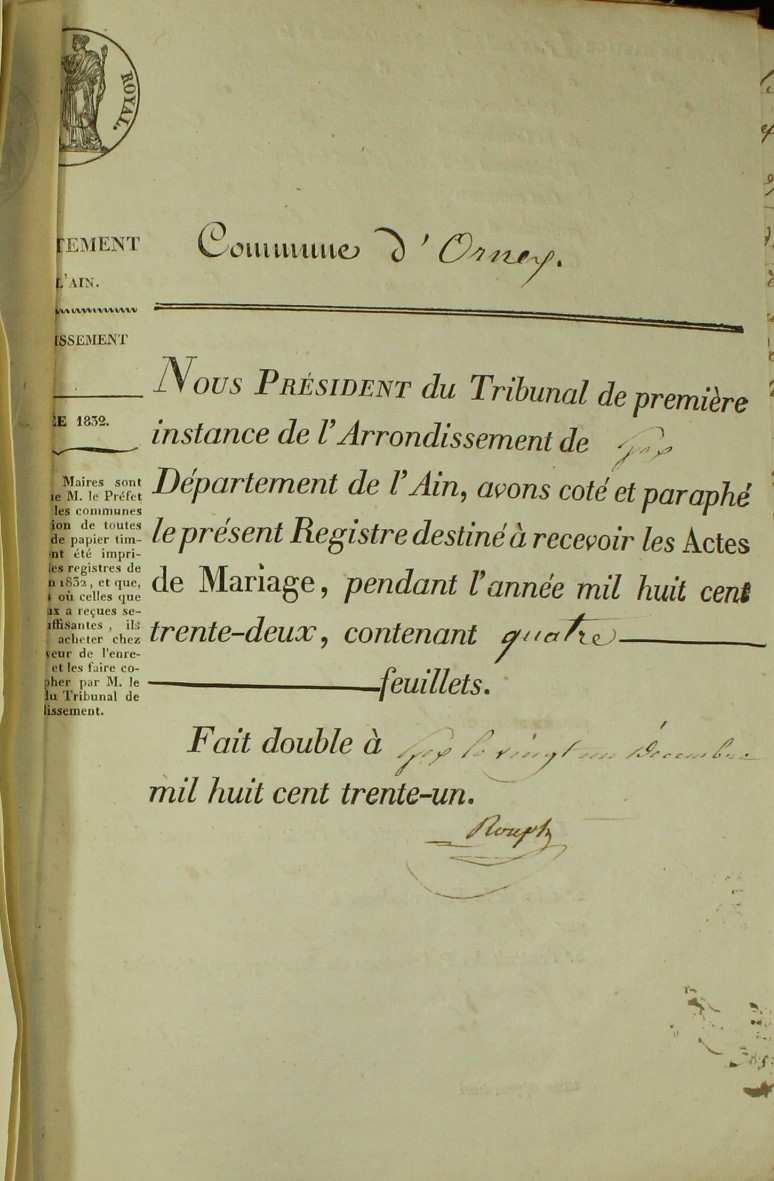 ROYAL.
TEMENT
L'AIN.
ISSEMENT
E 1832.
Maires sont
e M. le Préfet
les communes
ion de toutes
de papier tim-
nt été impri-
es registres de
n 1832, et que,
où celles que
ux a reçues se-
ffisantes, ils
acheter chez
veur de l'enre-
et les faire co-
pher par M. le
du Tribunal de
lissement.
Commune d'Orney.
NOUS PRÉSIDENT du Tribunal de première
instance de l'Arrondissement de Gex
Département de l'Ain, avons coté et paraphé
le présent Registre destiné à recevoir les Actes
de Mariage, pendant l'année mil huit cent
trente-deux, contenant quatre
feuillets.
Fait double à Gex le vingt un Décembre
mil huit cent trente-un.